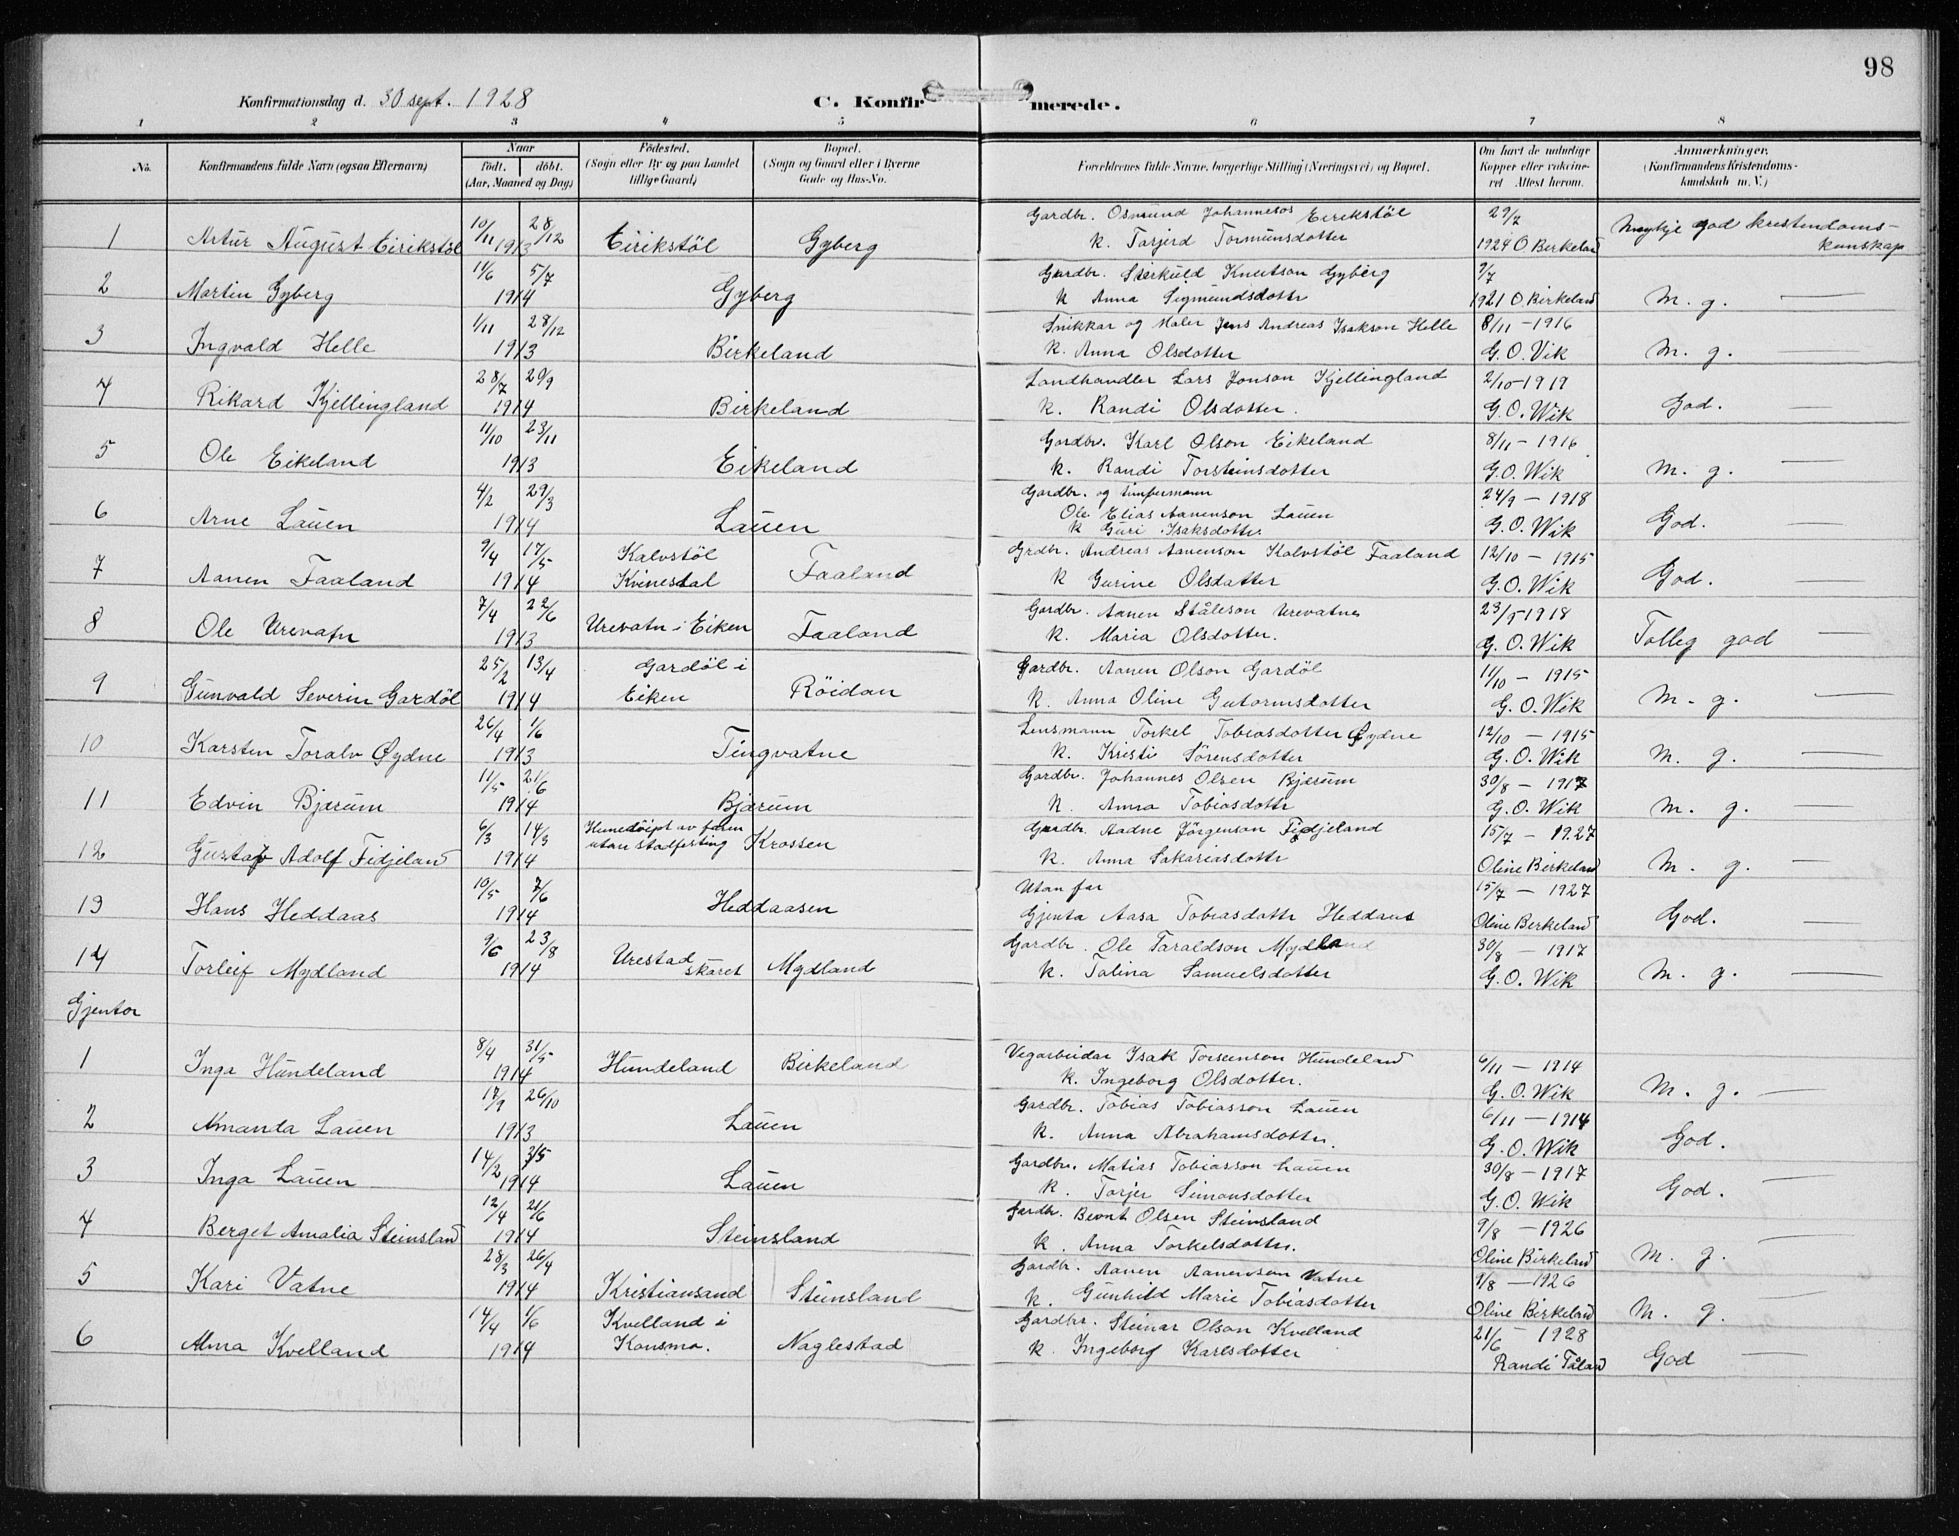 98
Konfirmationsdag d. 30 sept. 1928 C. Konfirmerede.
1 2 3 4 5 6 7 8
No. Konfirmandens fulde Navn (ogsaa Efternavn) Naar født. døbt. (Aar, Maaned og Dag) Fødested. (Sogn eller By og paa Landet tillige Gaard) Bopæl. (Sogn og Gaard eller i Byerne Gade og Hus-No. Forældrenes fulde Navne, borgerlige Stilling (Næringsvei) og Bopæl. Om havt de naturlige Kopper eller vakcineret Attest herom. Anmærkninger. (Konfirmandens Kristendomskundskab m. V.)
1 Artur August Eirikstöl 10/11 28/12 1913 Eirikstöl Gyberg Gardbr. Osmund Johanneson Eirikstöl 29/7 Mykje god kristendoms-
k. Tarjerd Tormunsdotter 1924 O Birkeland kunskap
2 Martin Gyberg 11/6 5/7 1914 Gyberg Gardbr. Sterkuld Knutson Gyberg 9/7
k Anna Sigmundsdotter 1921 O. Birkeland M. g. —
3 Ingvald Helle 1/11 28/12 1913 Birkeland Snikkar og Maler Jens Andreas Isakson Helle 8/11 – 1916
k. Anna Olsdotter G. O. Vik M. g. —
4 Rikard Kjellingland 28/7 20/9 1914 Birkeland Landhandler Lars Jonson Kjellingland 2/10-1919
k. Randi Olsdotter. G. O. Wik God. —
5 Ole Eikeland 11/10 23/11 1913 Eikeland Gardbr. Karl Olson Eikeland 8/11 – 1916
k. Randi Torsteinsdotter G. O. Wik M. g. —
6 Arne Lauen 4/2 29/3 1914 Lauen Gardbr. og timpermann 24/9 – 1918
Ole Elias Aanenson Lauen
k Guri Isaksdotter G. O. Wik God. —
7 Aanen Faaland 9/4 17/5 1914 Kalvstöl Kvinesdal Faaland Grdbr. Andreas Aanenson Kalvstöl Faaland 12/10 – 1915
k Gurine Olsdatter G. O. Wik God. —
8 Ole Urevatn 7/4 22/6 1913 Urevatn i Eiken Faaland Gardbr. Aanen Ståleson Urevatne 23/5 1918
k. Maria Olsdotter. G. O. Wik Tolleg god —
9 Gunvald Severin Gardöl 25/2 13/4 1914 Gardöl i Eiken Röidan Gardbr. Aanen Olson Gardöl 11/10 – 1915
k. Anna Oline Gutormsdotter G. O. Wik M. g. —
10 Karsten Toralv Øydne 26/4 1/6 1913 Tingvatne Lensmann Torkel Tobiasdotter Øydne 12/10 – 1915
k. Kristi Sörensdotter G. O. Wik M. g. —
11 Edvin Bjærum 11/5 21/6 1914 Bjærum Gardbr. Johannes Olsen Bjærum 30/8 – 1917
k. Anna Tobiasdotter G. O. Wik M. g. —
12 Gustav Adolf Fidjeland 6/3 14/3 1914 Hemedöipt av faren utan stadfesting Krossen Gardbr. Aadne Jörgenson Fidjeland 15/7 – 1927
k. Anna Sakariasdotter Oline Birkeland M. g. —
13 Hans Heddaas 10/5 7/6 1914 Heddaasen Utan far 15/7 – 1927
Gjenta Aasa Tobiasdotter Heddaas Oline Birkeland God. —
14 Torleif Mydland 9/6 23/8 1914 Urestad skaret Mydland Gardbr. Ole Taraldson Mydland 30/8 – 1917
k. Talina Samuelsdotter G. O. Wik M. g. —
Gjentor
1 Inga Hundeland 8/4 31/5 1914 Hundeland Birkeland Vegarbeidar Isak Hundeland 6/11 – 1914
k. Ingeborg Olsdotter. G. O. Wik M. g. —
2 Amanda Lauen 17/9 26/10 1913 Lauen Gardbr. Tobias Tobiasson Lauen 6/11 – 1914
k. Anna Abrahamsdotter. G. O. Wik God. —
3 Inga Lauen 14/2 1914 Lauen Gardbr. Matias Tobiasson Lauen 30/8 – 1917
k. Torjer Simonsdotter G. O. Wik God. —
4 Berget Amalia Steinsland 12/4 21/6 1914 Steinsland Gardbr. Bernt Olsen Steinsland 9/8 – 1926
k. Anna Torkelsdotter. Oline Birkeland M. g. —
5 Kari Vatne 28/3 26/4 1914 Kristiansand Steinsland Gardbr. Aanen Aanenson Vatne 9/8 – 1926
k. Gunhild Marie Tobiasdotter Oline Birkeland M. g.
6 Alma Kvelland 14/4 1/6 1914 Kvelland i Konsmo. Naglestad Gardbr. Steinar Olson Kvelland 21/6 – 1928
k. Ingeborg Karlsdotter Randi Tåland God —